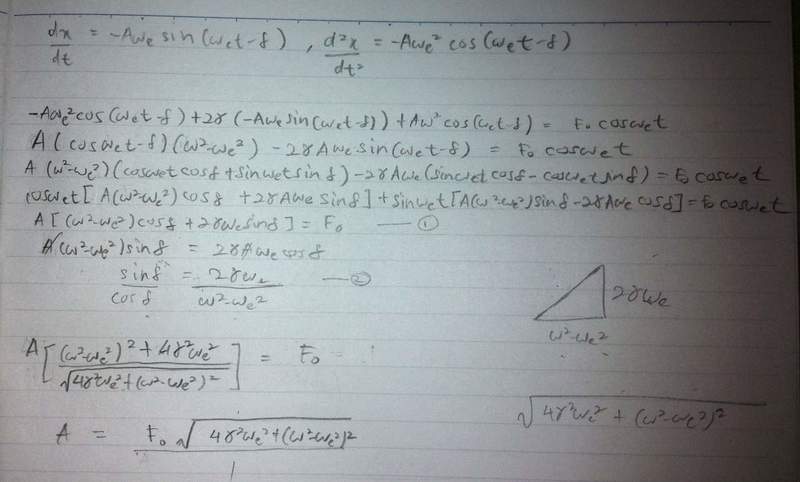 dx/dt = -Aωe sin(ωet-δ) , d²x/dt² = -Aωe² cos(ωet-δ)
-Aωe²cos(ωet-δ)+2γ(-Aωe sin(ωet-δ))+Aω²cos(ωet-δ) = F₀ cosωet
A(cosωet-δ)(ω²-ωe²) - 2γAωe sin(ωet-δ) = F₀ cosωet
A (ω²-ωe²)(cosωet cosδ + sinωet sinδ) - 2γAωe(sinωet cosδ - cosωet sinδ) = F₀ cosωet
cosωet[A(ω²-ωe²) cosδ + 2γAωe sinδ] + sinωet[A(ω²-ωe²)sinδ - 2γAωe cosδ] = F₀ cosωet
A[(ω²-ωe²)cosδ + 2γωe sinδ] = F₀ — ①
A(ω²-ωe²)sinδ = 2γAωe cosδ
sinδ/cosδ = 2γωe/ω²-ωe² — ②
2γωe
ω²-ωe²
A[(ω²-ωe²)²+4γ²ωe²/√4γ²ωe²+(ω²-ωe²)²] = F₀
√4γ²ωe² + (ω²-ωe²)²
A = F₀√4γ²ωe²+(ω²-ωe²)²/